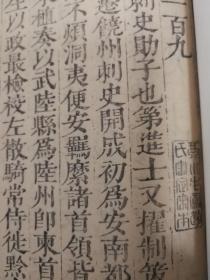 一百九
刺史勛子也第進士又擢制
遷饒州刺史開成初爲安南都
不煩洞夷便安羈縻諸首領皆
植奏以武陸縣爲陸州即柬首
以政最檢校左散騎常侍徙黔